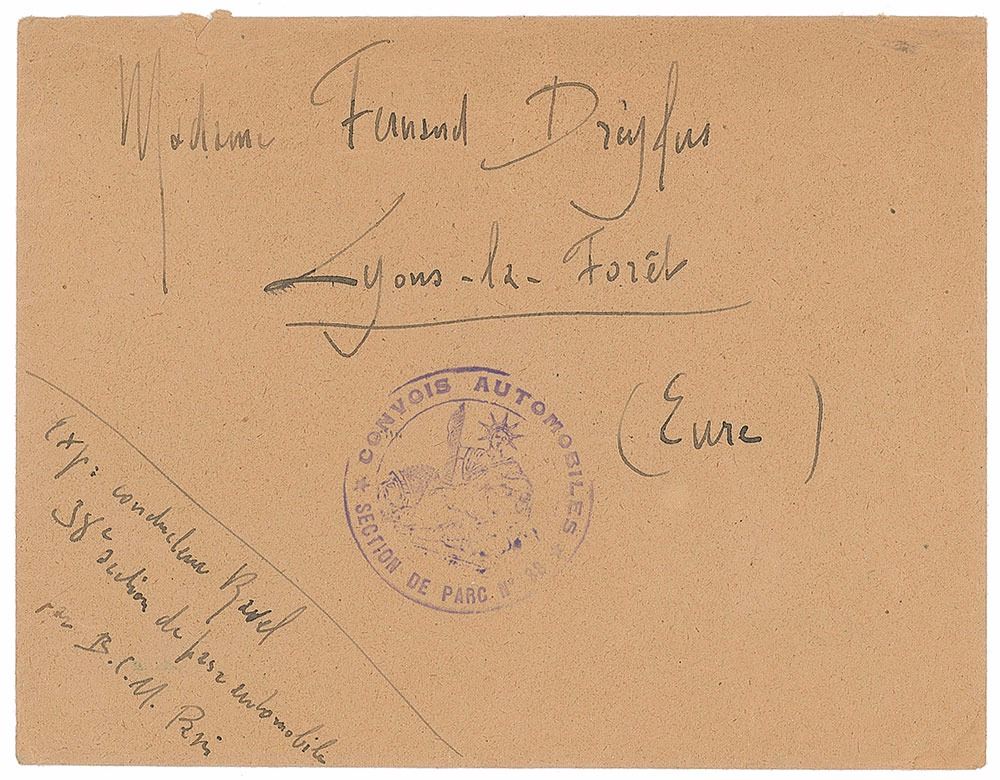 Madame Fernand Dreyfus
Lyons-la-Forêt
(Eure)
★ CONVOIS AUTOMOBILES ★
SECTION DE PARC Nº 38
Exp: conducteur Ravel
38e section de parc automobile
par B.C.M. Paris